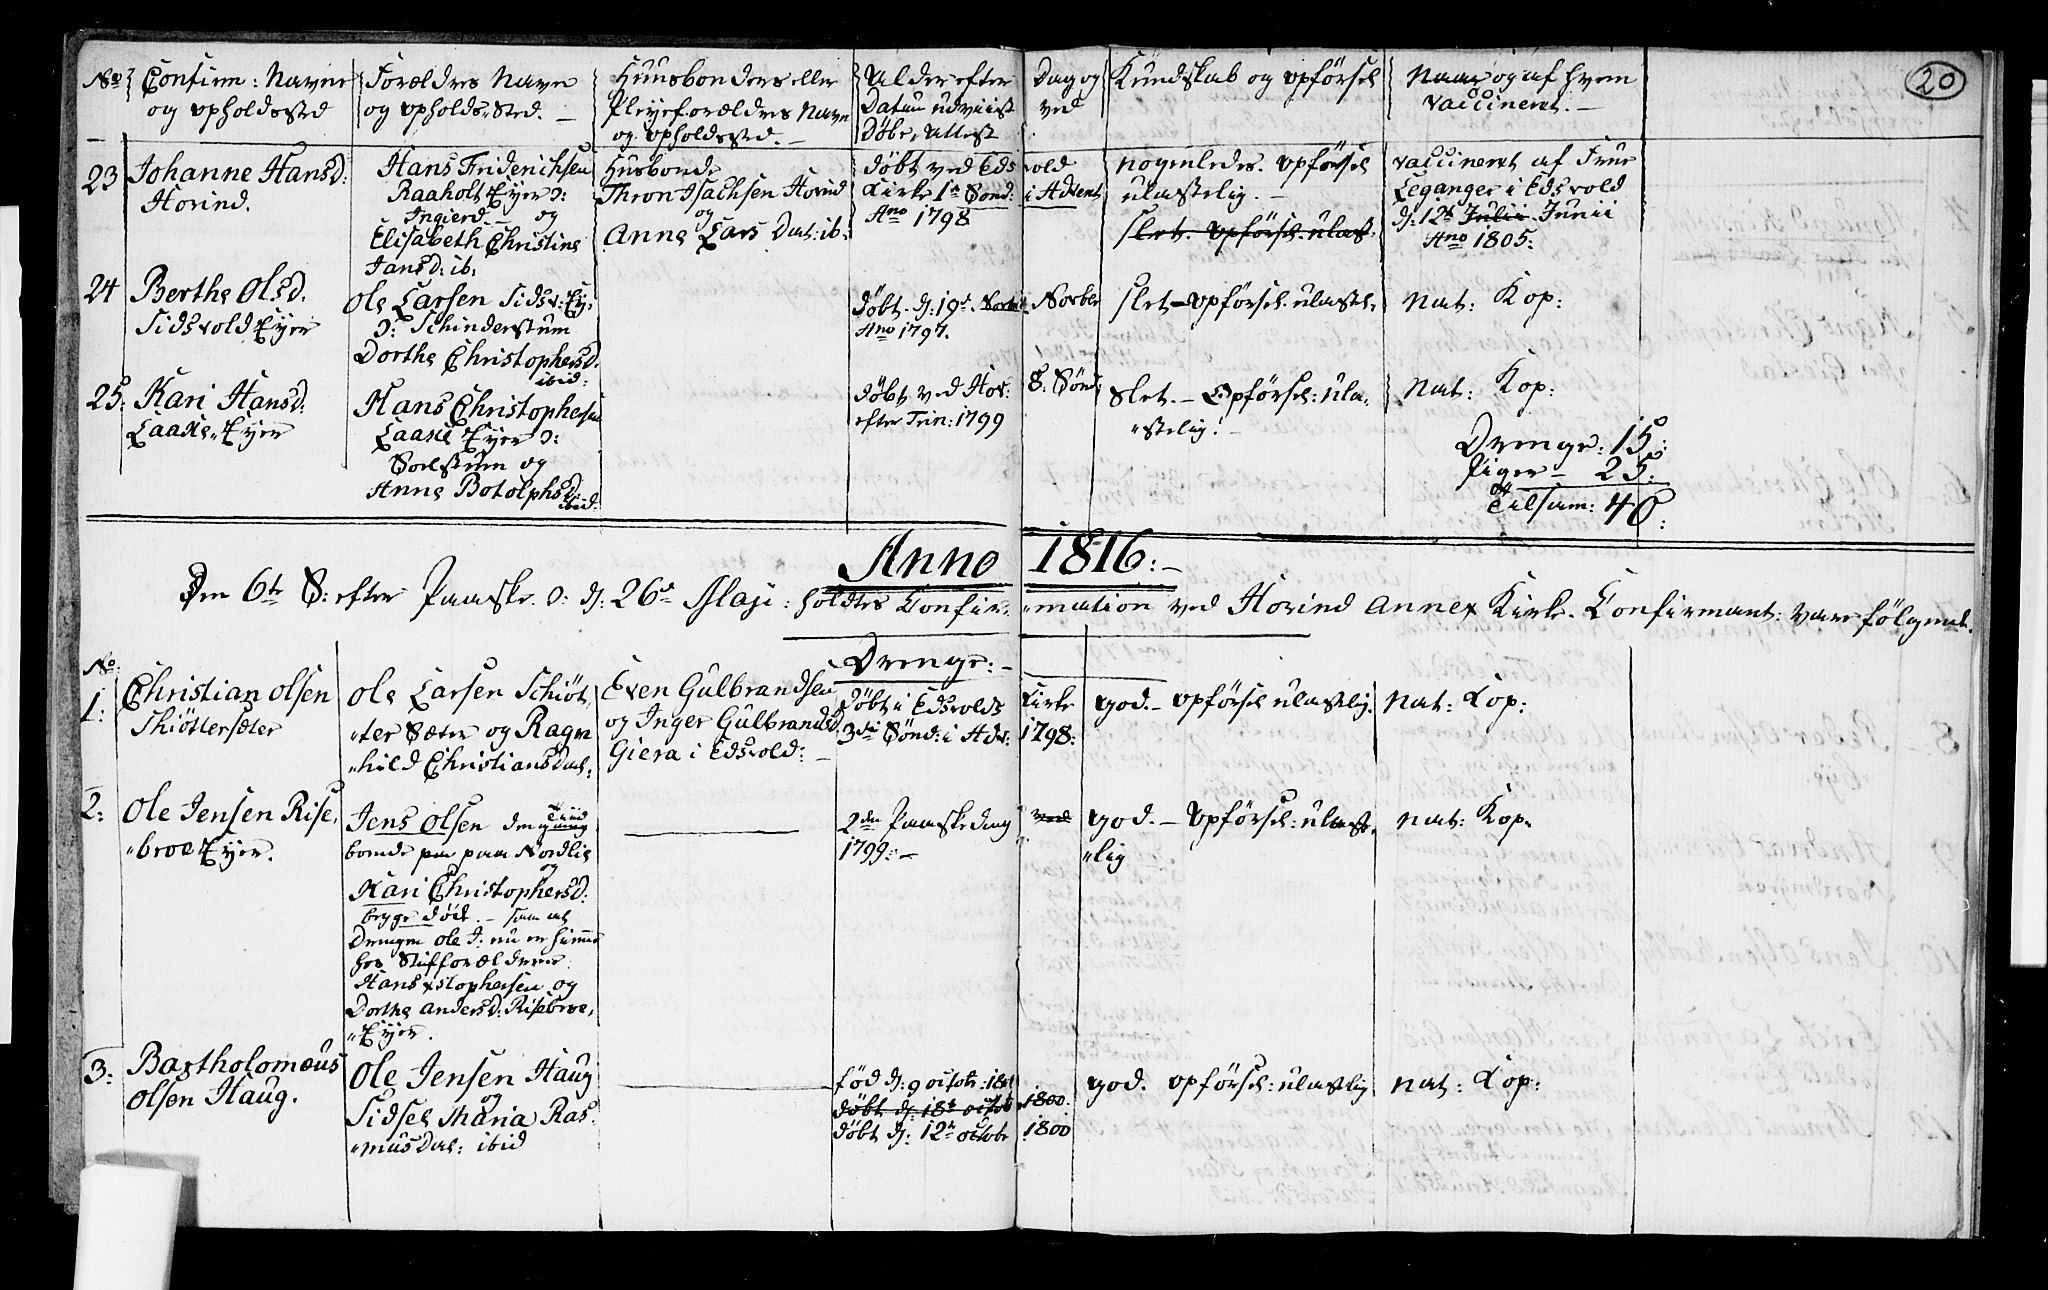 20
No Confirm: Navne
og opholdssted
Forældres Navne
og opholds-Sted. —
Huusbonders eller
Pleyeforældres Navn
og opholdssted. —
Alder efter
Datum udviist
Døbe, Attest
Dag og
ved
Kundskab og opförsel
Naar og af hvem
vaccineret. —
23 Johanne Hansd:
Hovind.
Hans Friderichsen
Raaholt Eyer ɔ:
Ingierd — og
Elisabeth Christine
Jansd: ib:
Husbonde
Thron Isachsen Hovind
og
Anne Lars Dat: ib:
døbt ved Eds
Kirke 1te Sond:
Ano 1798
vold
i Advent
nogenledes. opförsel
ulastelig. —
slet. opförsel. ulast.
vaccineret af Frue
Leganger i Edsvold
d: 12t Julii Junii
Ano 1805:
24 Berthe Olsd.
Sidsvold Eyer
Ole Larsen Sidsv: Ey:
ɔ: Schinderstuen
Dorthe Christophersd.
ibid:
døbt. d: 19d. Novbr
Ano 1797.
Novber
slet — opförsel: ulastel:
nat: Kop:
25: Kari Hansd:
Laache Eyer
Hans Christophersen
Laache Eyer ɔ:
og
Anne Botolphsd:
ibid:
døbt ved Hov:
efter Trin: 1799
8. Sönd:
slet. — Opförsel: ula-
"stelig. —
nat: Kop:
Drenge: 15:
Piger — 25:
Tilsam: 40:
Anno 1816: —
Den 6te S: efter Paaske. ɔ: d: 26d Maji: holdtes Confir- "mation ved Hovind Annex Kirke. Confirmant: vare fölgend.
Drenge: —
No
1: Christian Olsen
Skiöttersæter
Ole Larsen Schiöt
"ter Sæter og Ragn
"hild Christians Dat:
Even Gulbrandsen
og Inger Gulbrandsd
Giera i Edsvold: —
døbt i Edsvolds
3die Sönd: i Adv:
Kirke
1798:
god. — opförsel ulastelig.
nat: Cop:
2: Ole Jensen Rise,
"broe Eyer.
Jens Olsen
boende paa Nordlie
og
Kari Christophersd:
begge död. — som at
Drengen Ole J: nu er hiemme
hos Stifforældrene
Hans xstophersen og
Dorthe Andersd: Risebroe,
"Eyer.
2den Paaskedag
1799: —
ved
god. — Opförsel: ulaste,
"lig
nat: Kop:
3: Bartholomæus
Olsen Haug.
Ole Jensen Haug
og
Sidsel Maria Ras:
"mus Dat: ibid
fød d: 9 octobr: 1800
døbt d: 18t octob 1800.
døbt d: 12t octobr 1800
god. opförsel: ulastelig
nat: Cop: